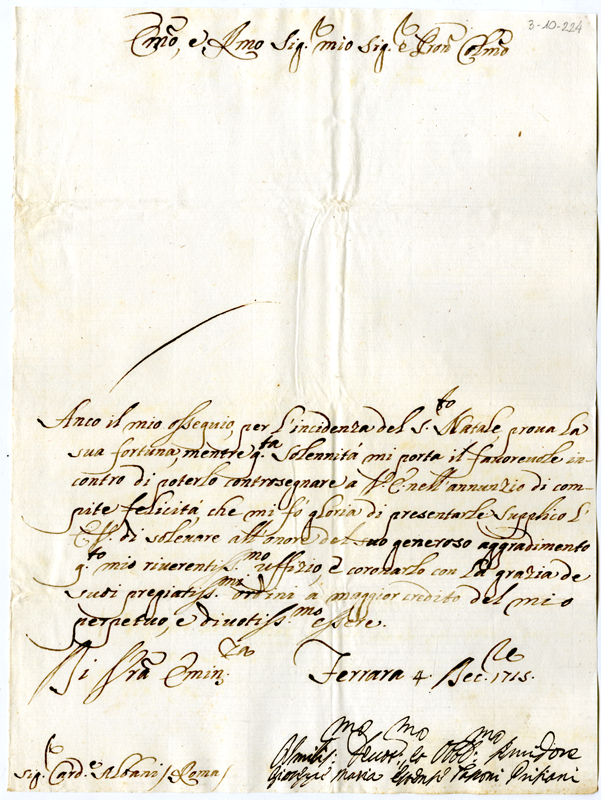 3-10-224
Emo, e Rmo Sig.r mio Sig.r e Pron Colmo
Anco il mio ossequio, per l'incidenza del S.to Natale prova la
sua fortuna, mentre q.ta Solennità mi porta il favorevole in-
contro di poterlo contrasegnare a V. E. nell'annunzio di com-
pite felicità, che mi fò gloria di presentarle. Supplico l'
E. V. di solevare all'onore del suo generoso aggradimento
q.to mio riverentiss.mo uffizio, e coronarlo con la grazia de
suoi pregiatiss.mi ordini a maggior credito del mio
perpetuo, e divotiss.mo essere.
Di Vrã Emin.za Ferrara 4. Dec.re 1715.
Sig.r Card.e Albani / Roma /
Vmiliss.mo Devot.mo et Obbl.mo Servidore
Maria